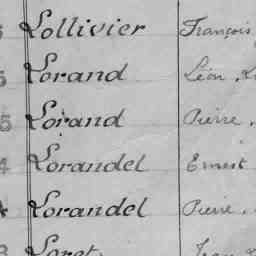 Lollivier François
5 Lorand Léon
5 Loirand Pierre,
4 Lorandel Ernest
4 Lorandel Pierre,
Loret